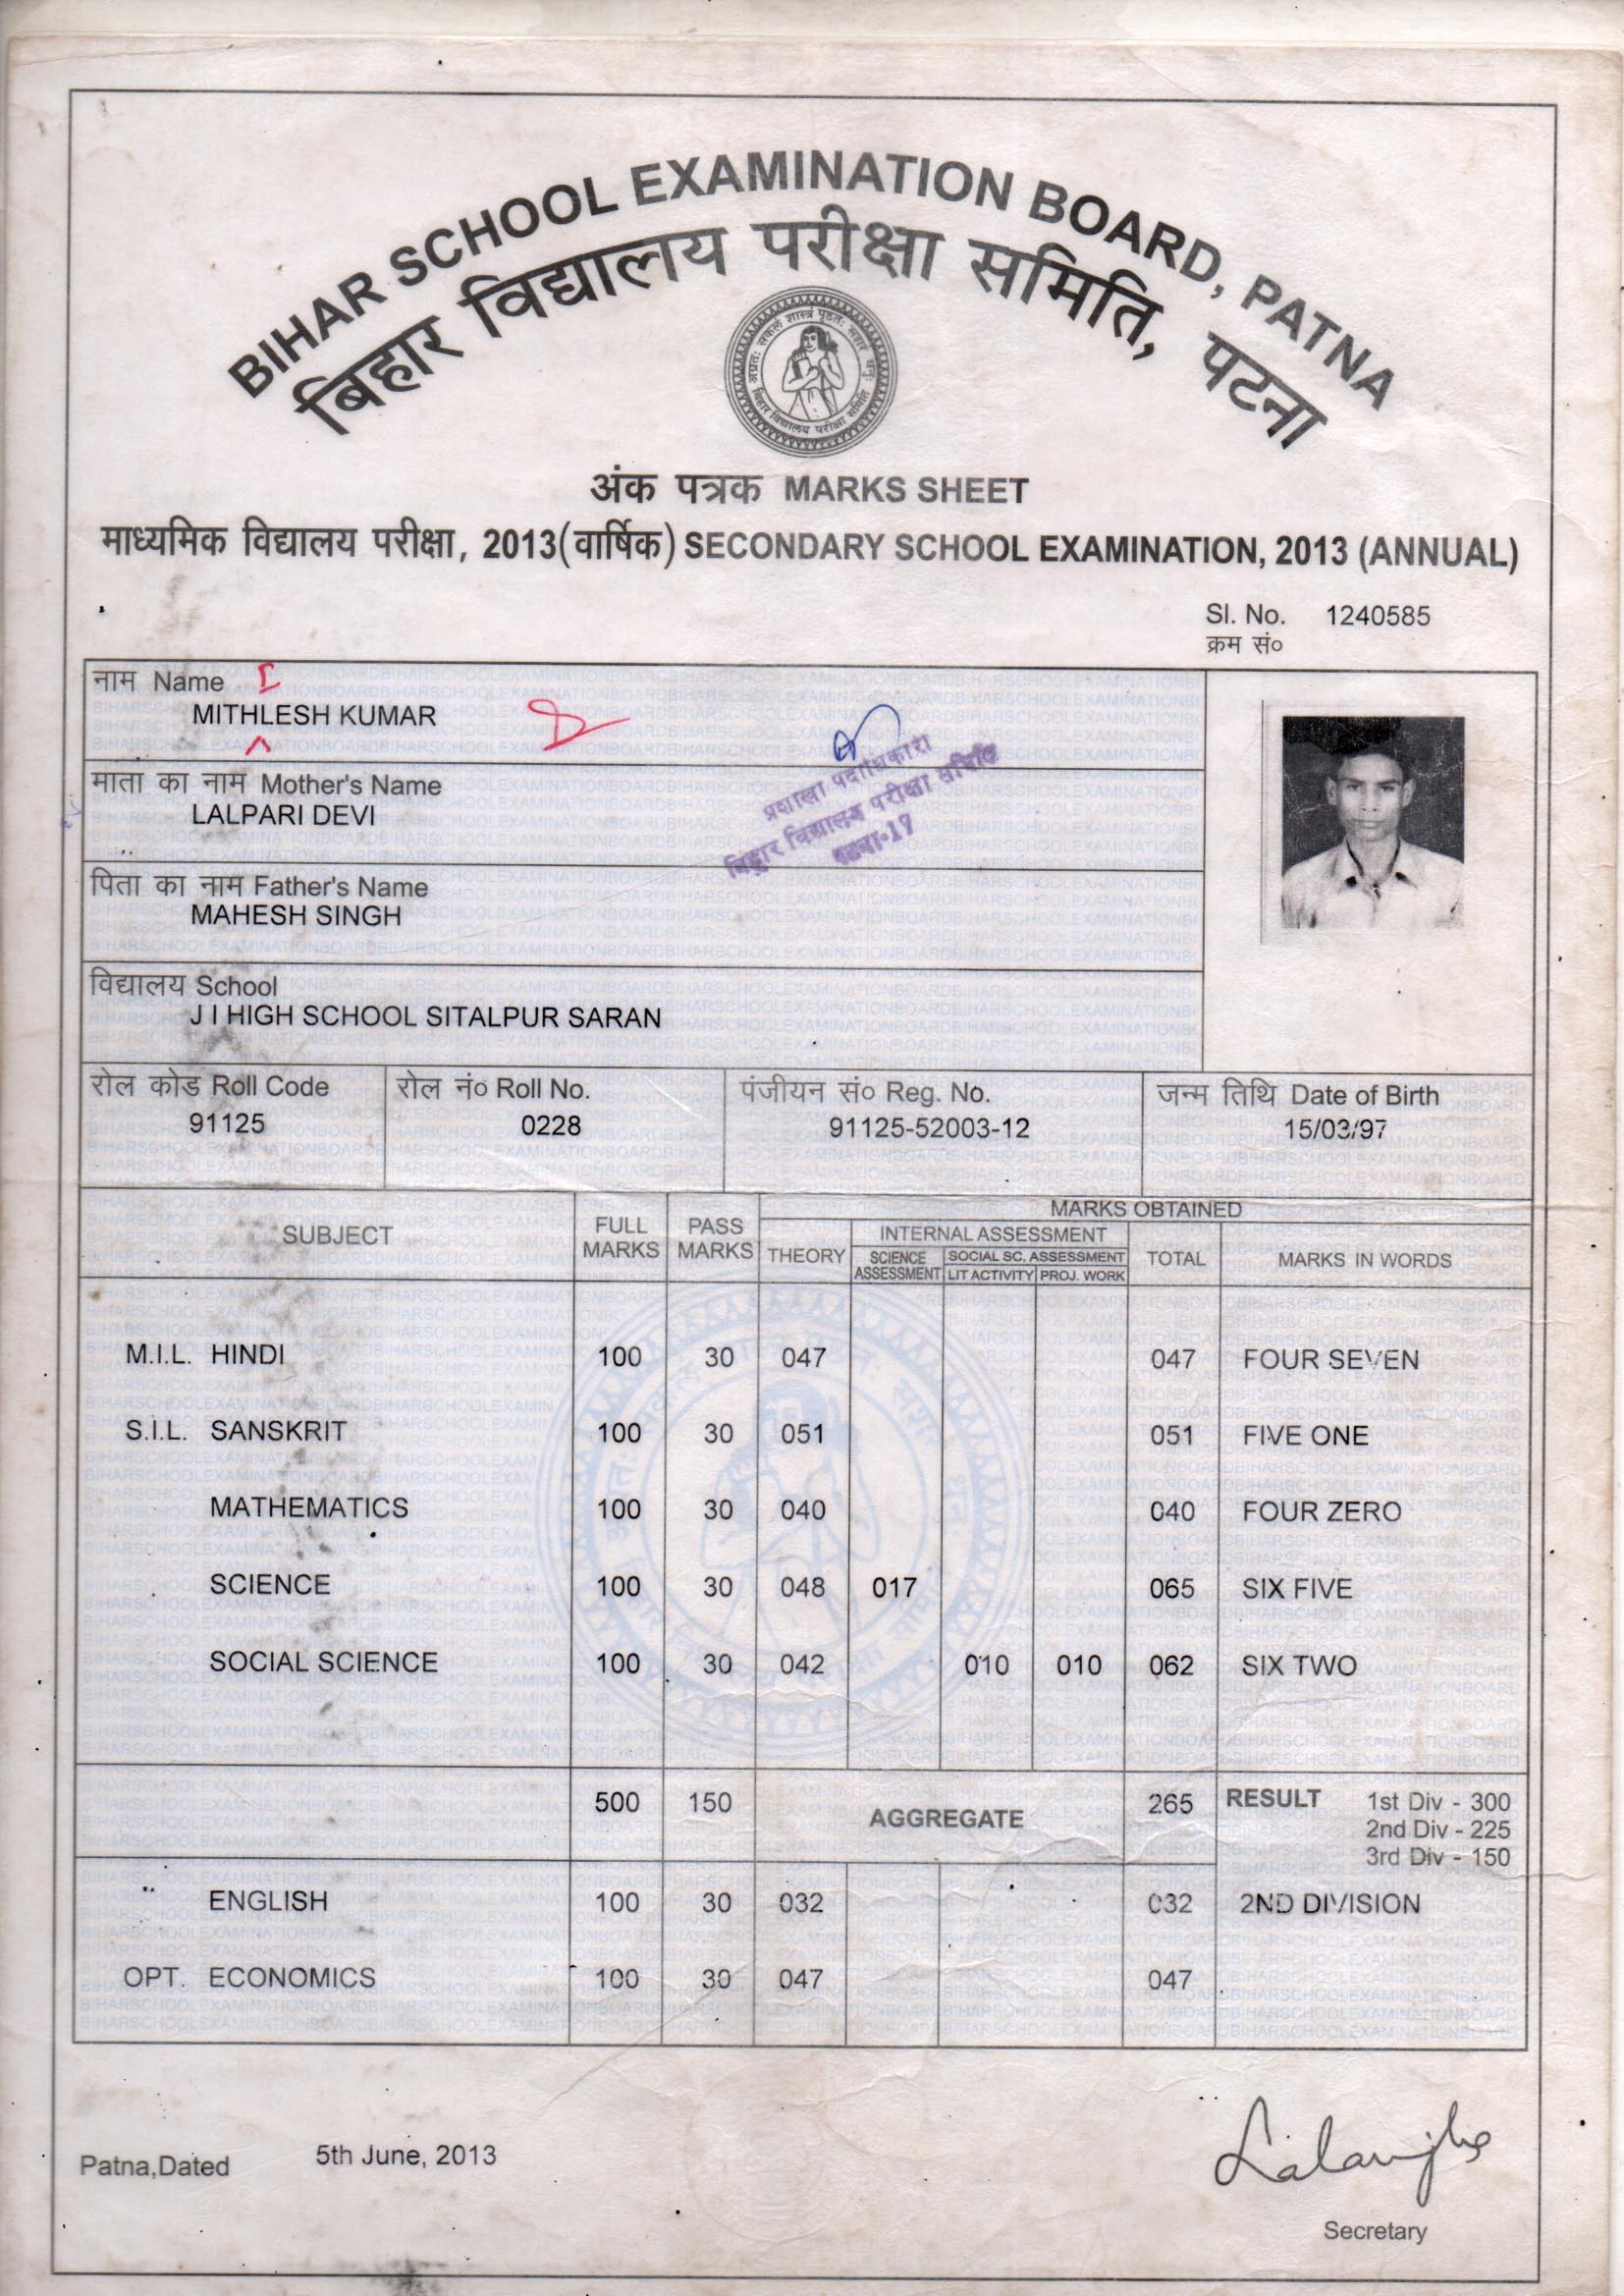 BIHAR SCHOOL EXAMINATION BOARD, PATNA
बिहार विद्यालय परीक्षा समिति, पटना
बिहार विद्यालय परीक्षा समिति
अंक पत्रक MARKS SHEET
माध्यमिक विद्यालय परीक्षा, 2013(वार्षिक) SECONDARY SCHOOL EXAMINATION, 2013 (ANNUAL)
Sl. No. 1240585
क्रम सं०
नाम Name I
MITHLESH KUMAR
माता का नाम Mother's Name
LALPARI DEVI
प्रशाखा पदाधिकारी
बिहार विद्यालय परीक्षा समिति
पटना-17
पिता का नाम Father's Name
MAHESH SINGH
विद्यालय School
J I HIGH SCHOOL SITALPUR SARAN
रोल कोड Roll Code रोल नं० Roll No. पंजीयन सं० Reg. No. जन्म तिथि Date of Birth
91125 0228 91125-52003-12 15/03/97
MARKS OBTAINED
SUBJECT FULL MARKS PASS MARKS THEORY INTERNAL ASSESSMENT TOTAL MARKS IN WORDS
SCIENCE ASSESSMENT SOCIAL SC. ASSESSMENT
LIT ACTIVITY PROJ. WORK
M.I.L. HINDI 100 30 047 047 FOUR SEVEN
S.I.L. SANSKRIT 100 30 051 051 FIVE ONE
MATHEMATICS 100 30 040 040 FOUR ZERO
SCIENCE 100 30 048 017 065 SIX FIVE
SOCIAL SCIENCE 100 30 042 010 010 062 SIX TWO
500 150 AGGREGATE 265 RESULT 1st Div - 300
2nd Div - 225
3rd Div - 150
ENGLISH 100 30 032 032 2ND DIVISION
OPT. ECONOMICS 100 30 047 047
Patna,Dated 5th June, 2013
Secretary